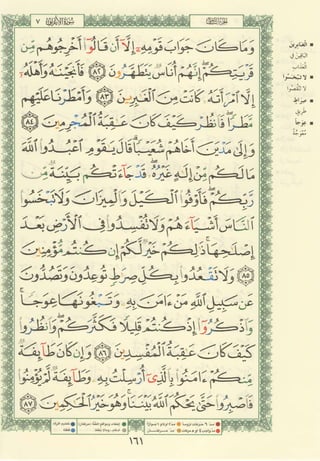 ٧ سُورَةُ الْأَعْرَافِ
وَمَا كَانَ جَوَابَ قَوْمِهِ إِلَّا أَن قَالُوا أَخْرِجُوهُم مِّن
قَرْيَتِكُمْ إِنَّهُمْ أُنَاسٌ يَتَطَهَّرُونَ ٨٢ فَأَنجَيْنَاهُ وَأَهْلَهُ
إِلَّا امْرَأَتَهُ كَانَتْ مِنَ الْغَابِرِينَ ٨٣ وَأَمْطَرْنَا عَلَيْهِم
مَّطَرًا فَانظُرْ كَيْفَ كَانَ عَاقِبَةُ الْمُجْرِمِينَ ٨٤
وَإِلَى مَدْيَنَ أَخَاهُمْ شُعَيْبًا قَالَ يَا قَوْمِ اعْبُدُوا اللَّهَ
مَا لَكُم مِّنْ إِلَٰهٍ غَيْرُهُ قَدْ جَاءَتْكُم بَيِّنَةٌ مِّن
رَّبِّكُمْ فَأَوْفُوا الْكَيْلَ وَالْمِيزَانَ وَلَا تَبْخَسُوا
النَّاسَ أَشْيَاءَهُمْ وَلَا تُفْسِدُوا فِي الْأَرْضِ بَعْدَ
إِصْلَاحِهَا ذَٰلِكُمْ خَيْرٌ لَّكُمْ إِن كُنتُم مُّؤْمِنِينَ
٨٥ وَلَا تَقْعُدُوا بِكُلِّ صِرَاطٍ تُوعِدُونَ وَتَصُدُّونَ
عَن سَبِيلِ اللَّهِ مَنْ آمَنَ بِهِ وَتَبْغُونَهَا عِوَجًا
وَاذْكُرُوا إِذْ كُنتُمْ قَلِيلًا فَكَثَّرَكُمْ وَانظُرُوا
كَيْفَ كَانَ عَاقِبَةُ الْمُفْسِدِينَ ٨٦ وَإِن كَانَ طَائِفَةٌ
مِّنكُمْ آمَنُوا بِالَّذِي أُرْسِلْتُ بِهِ وَطَائِفَةٌ لَّمْ يُؤْمِنُوا
فَاصْبِرُوا حَتَّىٰ يَحْكُمَ اللَّهُ بَيْنَنَا وَهُوَ خَيْرُ الْحَاكِمِينَ ٨٧
١٦١